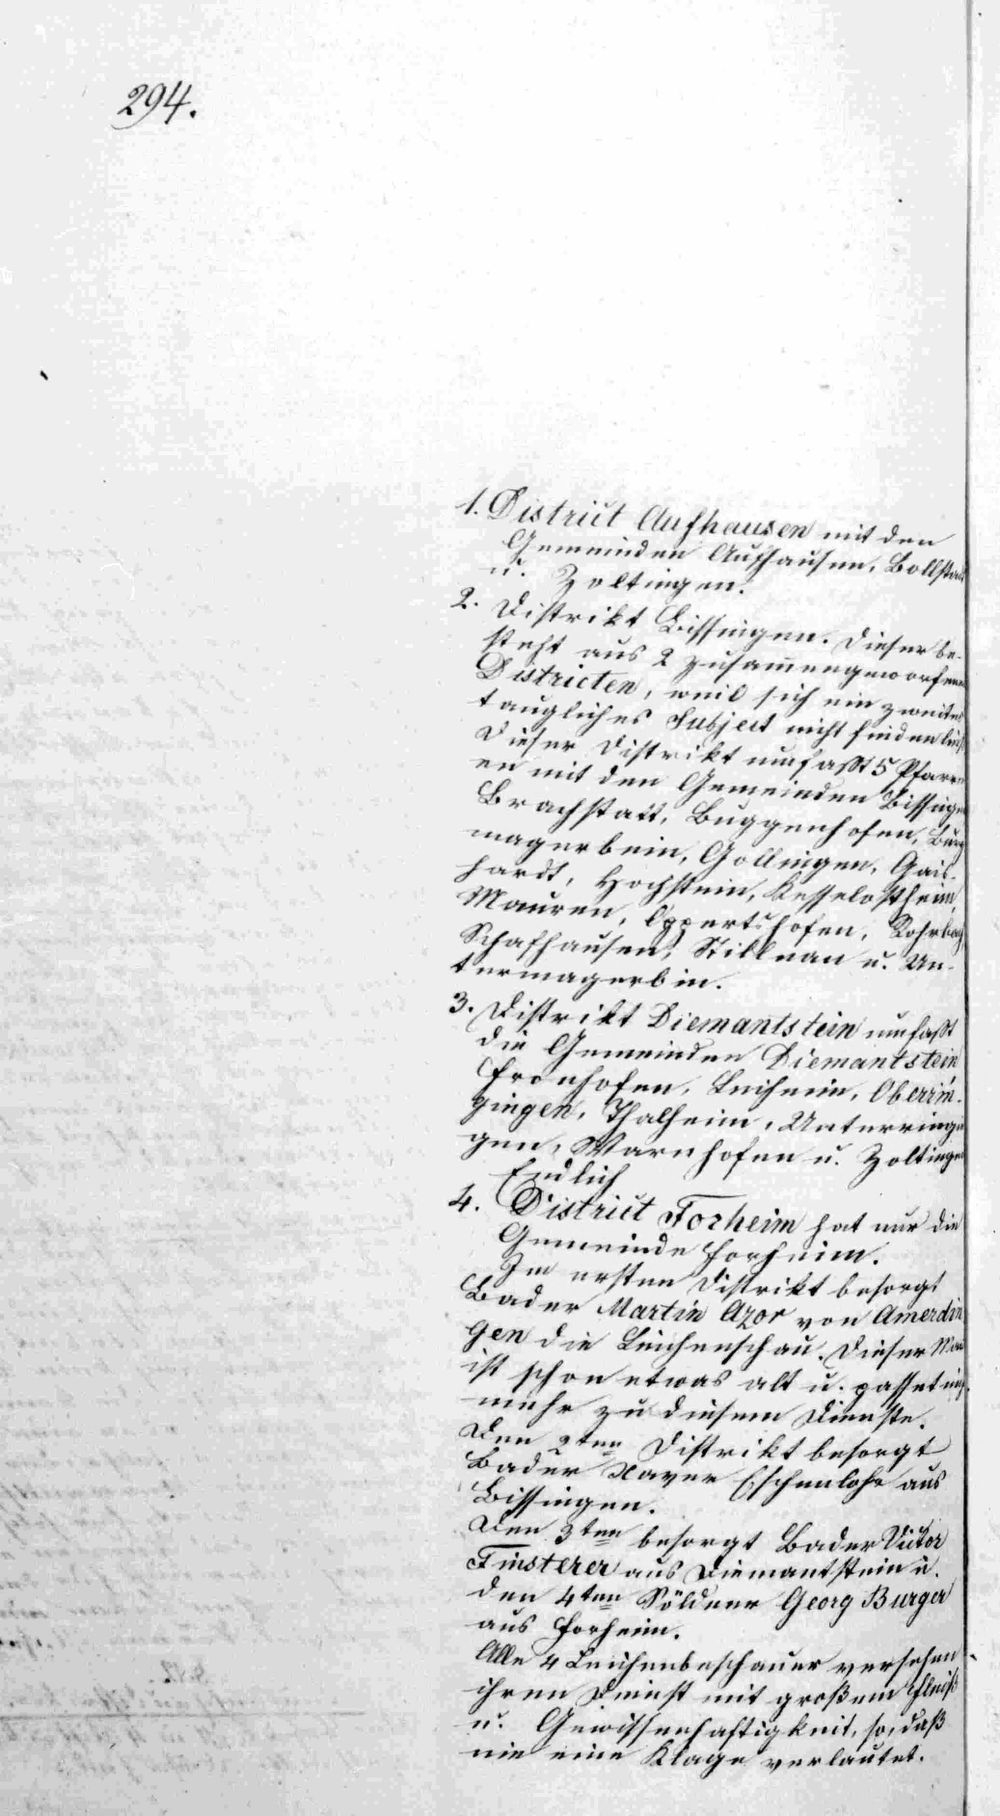 294.
1. District Aufhausen mit den
Gemeinden Aufhausen, Bollstadt
u. Zoltingen.
2. Distrikt Bissingen. Dieser be-
steht aus 2 zusammengeworfenen
Districten, weil sich ein zweites
taugliches Subject nicht finden ließ.
Dieser Distrikt umfaßt 5 Pfarrei-
en mit den Gemeinden Bissingen
Brachstatt, Buggenhofen, Burg-
magerbein, Göllingen, Gais-
hardt, Hochstein, Kesselostheim,
Mauren, Oppertshofen, Rohrbach
Schafhausen, Stillnau u. Un-
termagerbein.
3. Distrikt Diemantstein umfaßt
die Gemeinden Diemantstein
Fronhofen, Leiheim, Oberrin-
gingen, Thalheim, Unterringin
gen, Warnhofen u. Zoltingen
Endlich
4. District Forheim hat nur die
Gemeinde Forheim.
Im ersten Distrikt besorgt
Bader Martin Azor von Amerdin
gen die Leichenschau. Dieser Mann
ist schon etwas alt u. passet nicht
mehr zu diesem Dienste.
Den 2ten Distrikt besorgt
Bader Xaver Eschenlohr aus
Bissingen.
Den 3ten besorgt Bader Victor
Finsterer aus Diemantstein u.
den 4ten Söldner Georg Burger
aus Forheim.
Alle 4 Leichenbeschauer versehen
ihren Dienst mit großem Fleiß
u. Gewissenhaftigkeit, so, daß
nie eine Klage verlautet.